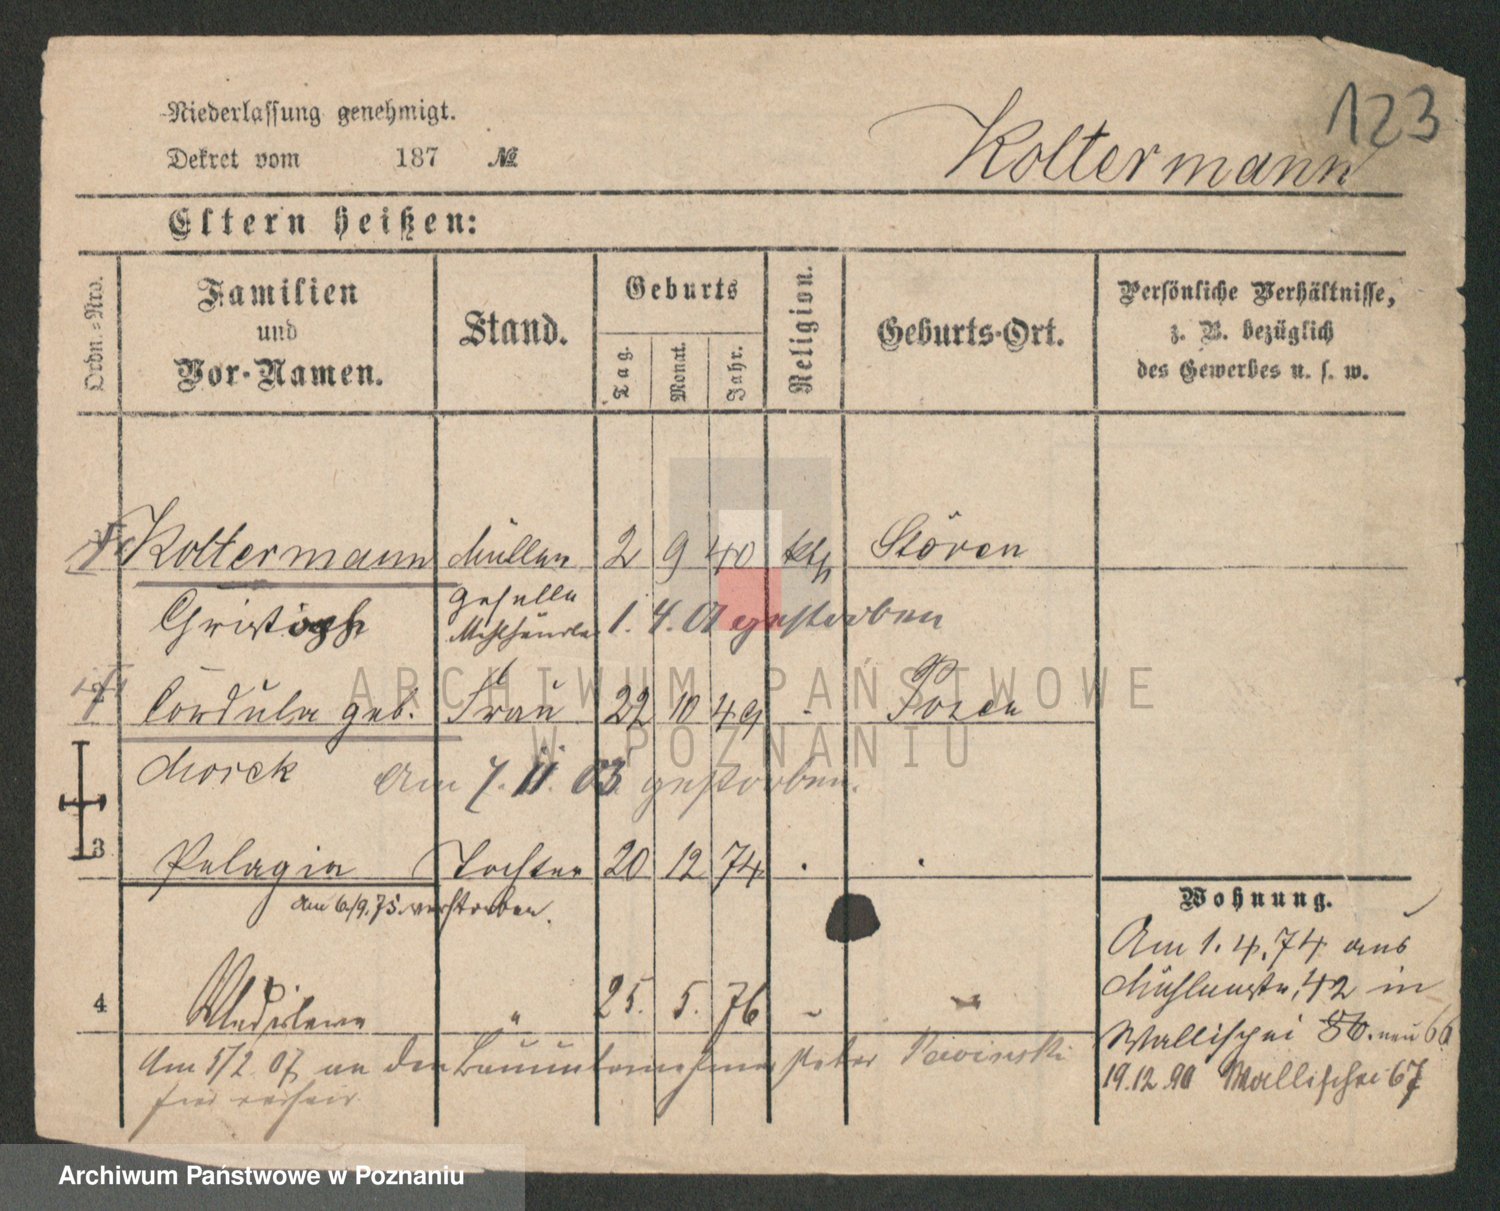 123
Niederlassung genehmigt.
Dekret vom 187 №
Koltermann
Eltern heißen:
Ordn.-Nro.
Familien und Vor-Namen.
Stand.
Geburts
Tag.
Monat.
Jahr.
Religion.
Geburts-Ort.
Persönliche Verhältnisse,
z. B. bezüglich
des Gewerbes u. s. w.
Koltermann Müller 2 9 40 kth Stören
Christoph geselle
Mehlhändler 1. 4. 01 gestorben
Cordula geb. Frau 22 10 49 Posen
Morek Am 7. 11. 03 gestorben.
3 Pelagia Tochter 20 12 74
am 6/9. 75. verstorben.
4 Wladislawa " 25. 5. 76
Am 5/2 07 an den Bauunternehmer Peter
Wohnung.
Am 1. 4. 74 aus
Mühlenstr. 42 in
Wallischei 86. neu 66
19.12.90 Wallischei 67
ARCHIWUM PAŃSTWOWE
W POZNANIU
Archiwum Państwowe w Poznaniu